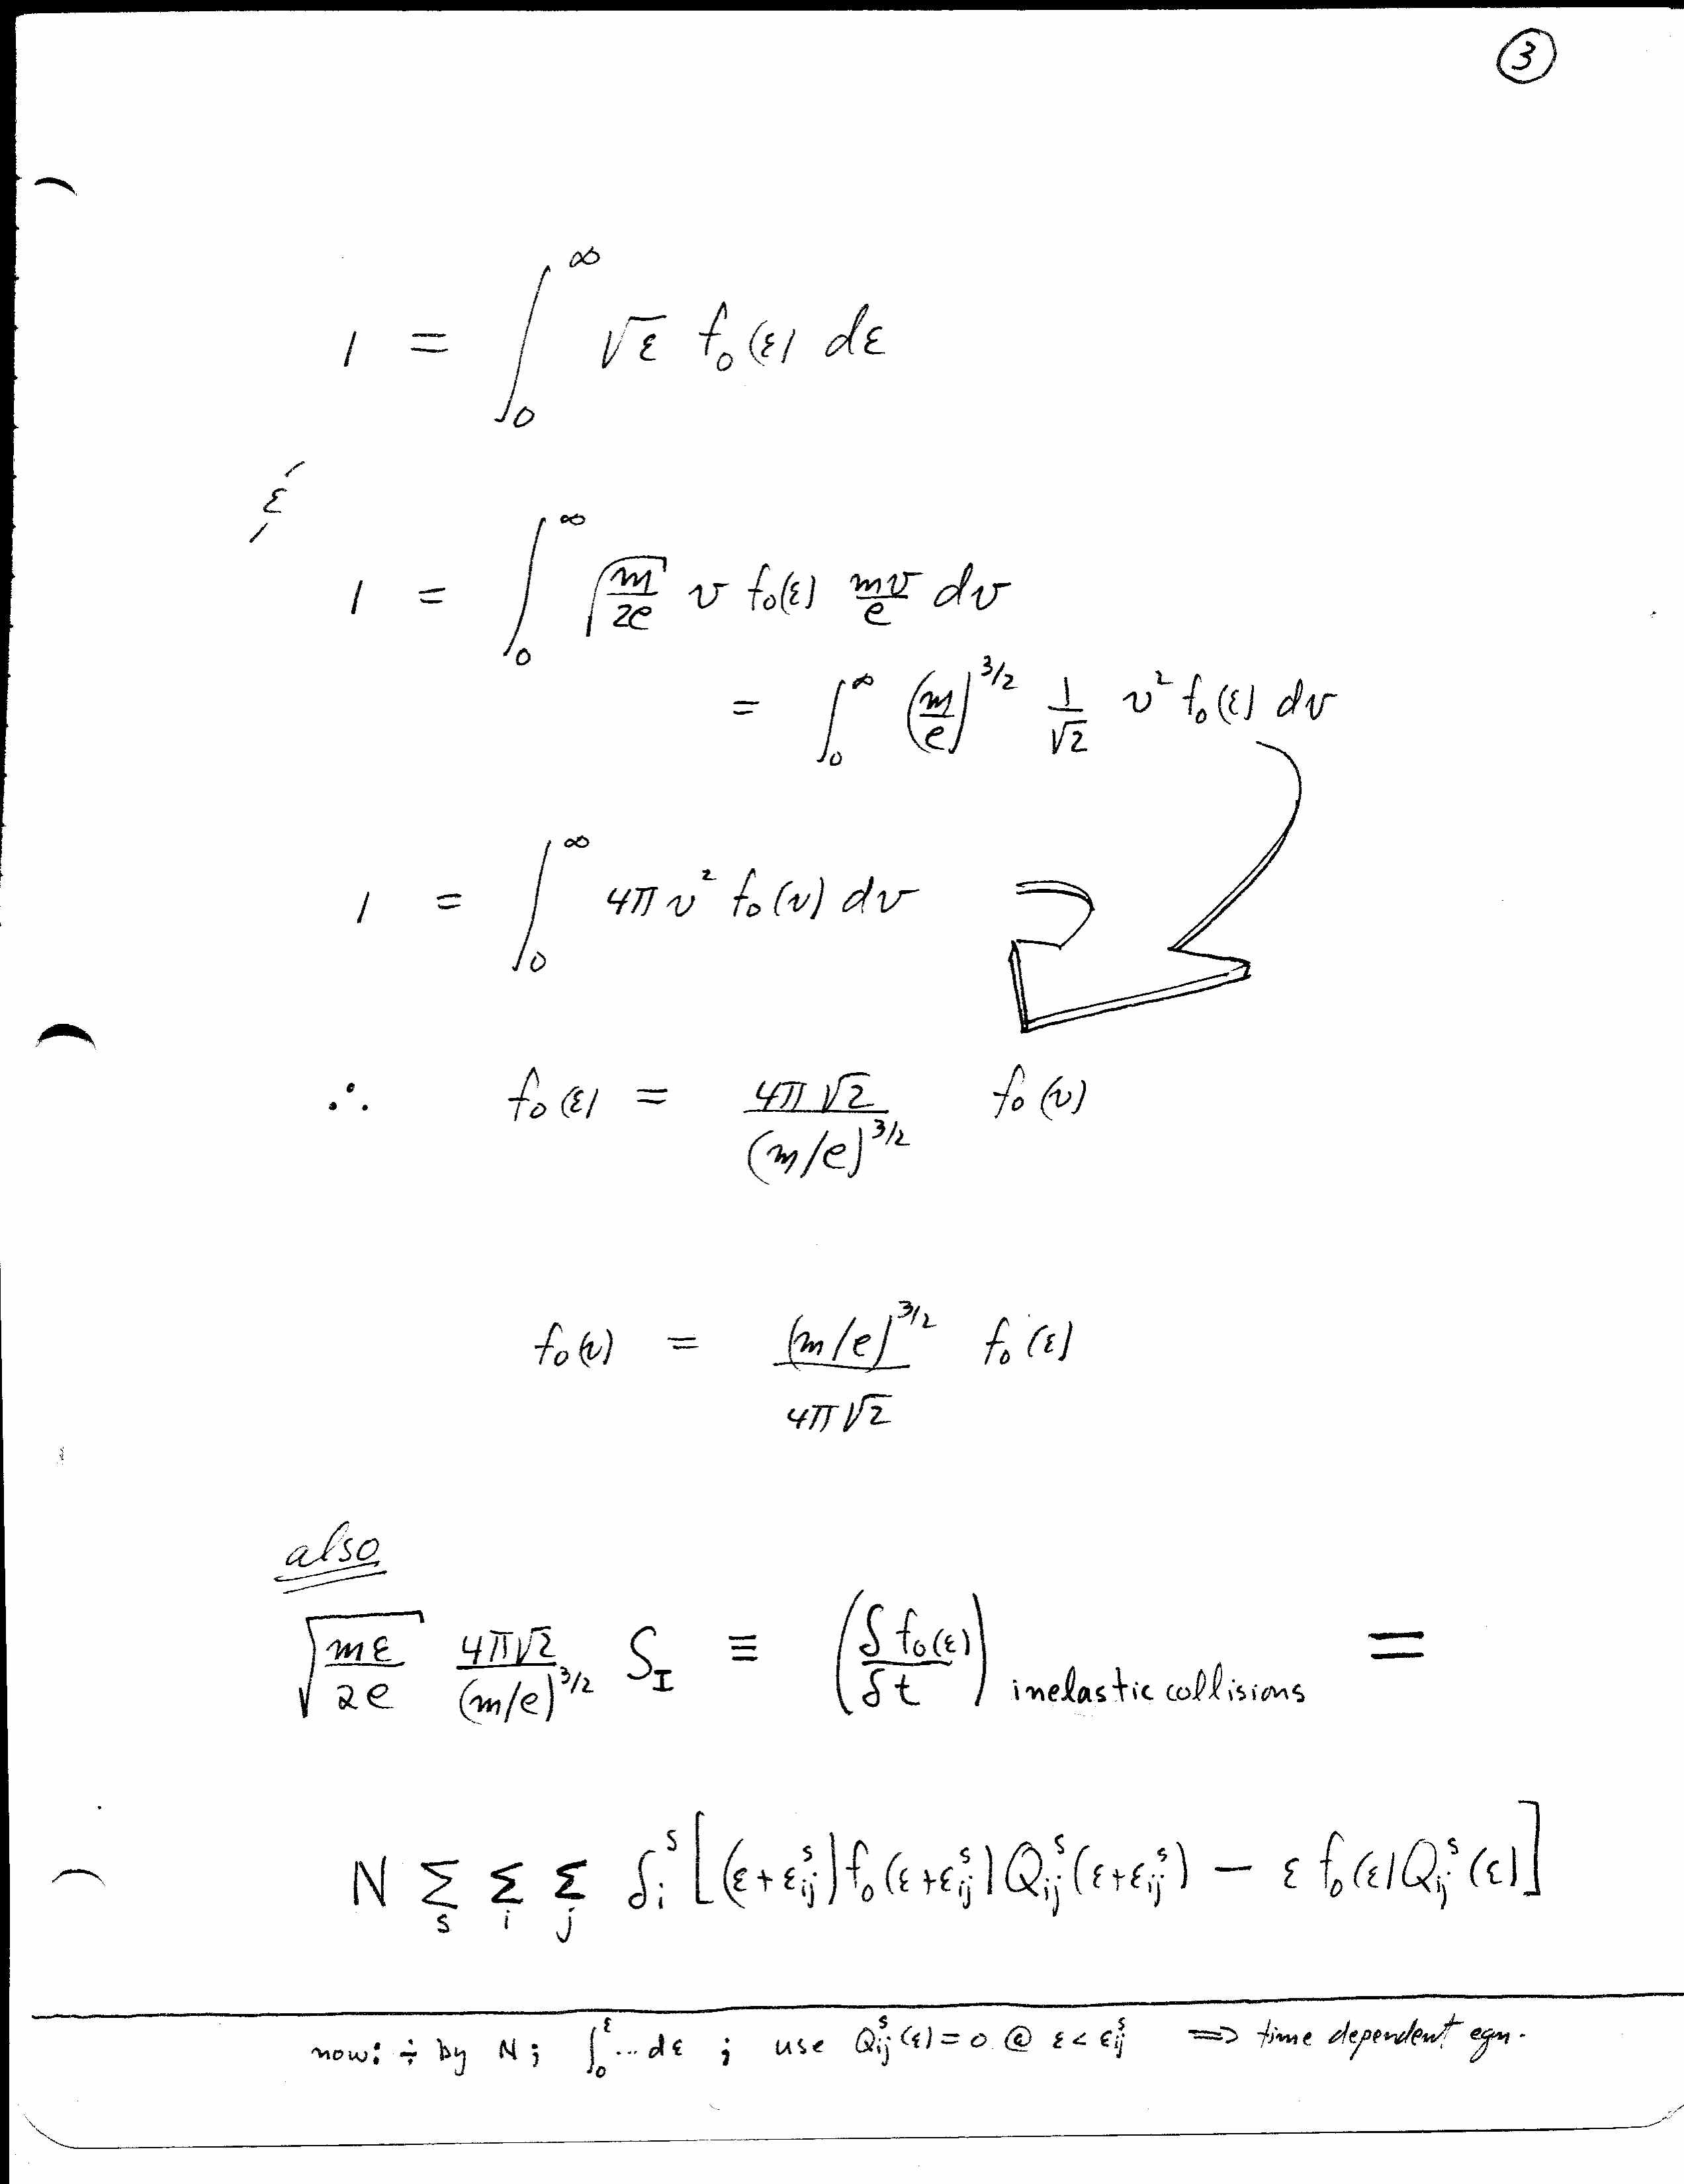 ③
1 = ∫₀^∞ √ε f₀(ε) dε
&
1 = ∫₀^∞ √(m/2e) v f₀(ε) (mv/e) dv
= ∫₀^∞ (m/e)^{3/2} (1/√2) v² f₀(ε) dv
1 = ∫₀^∞ 4π v² f₀(v) dv
∴ f₀(ε) = (4π√2 / (m/e)^{3/2}) f₀(v)
f₀(v) = ((m/e)^{3/2} / 4π√2) f₀(ε)
also
√(mε/2e) (4π√2 / (m/e)^{3/2}) S_I ≡ (δf₀(ε)/δt) inelastic collisions =
N Σ_s Σ_i Σ_j δ_i^s [(ε+ε_ij^s) f₀(ε+ε_ij^s) Q_ij^s(ε+ε_ij^s) − ε f₀(ε) Q_ij^s(ε)]
now: ÷ by N; ∫₀^ε ... dε ; use Q_ij^s(ε) = 0 @ ε < ε_ij^s ⇒ time dependent eqn.